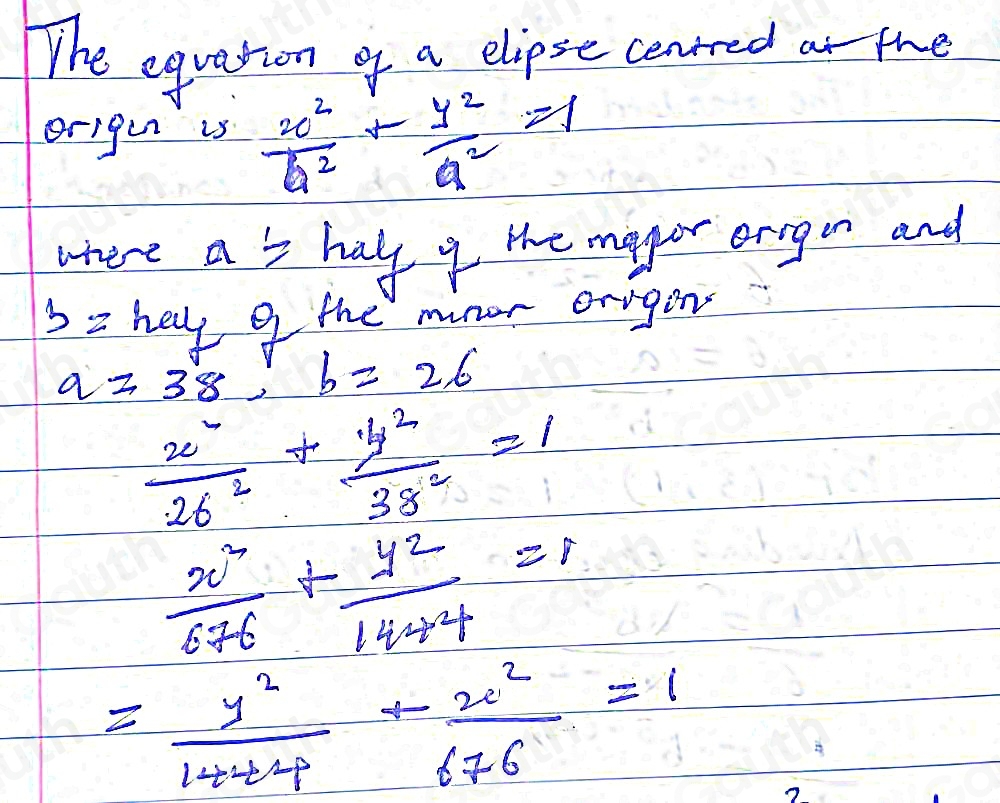 The equation of a elipse centred at the
origin is x²/b² + y²/a² = 1
where a = half of the major origin and
b = half of the minor origin
a = 38, b = 26
x²/26² + y²/38² = 1
x²/676 + y²/1444 = 1
= y²/1444 + x²/676 = 1